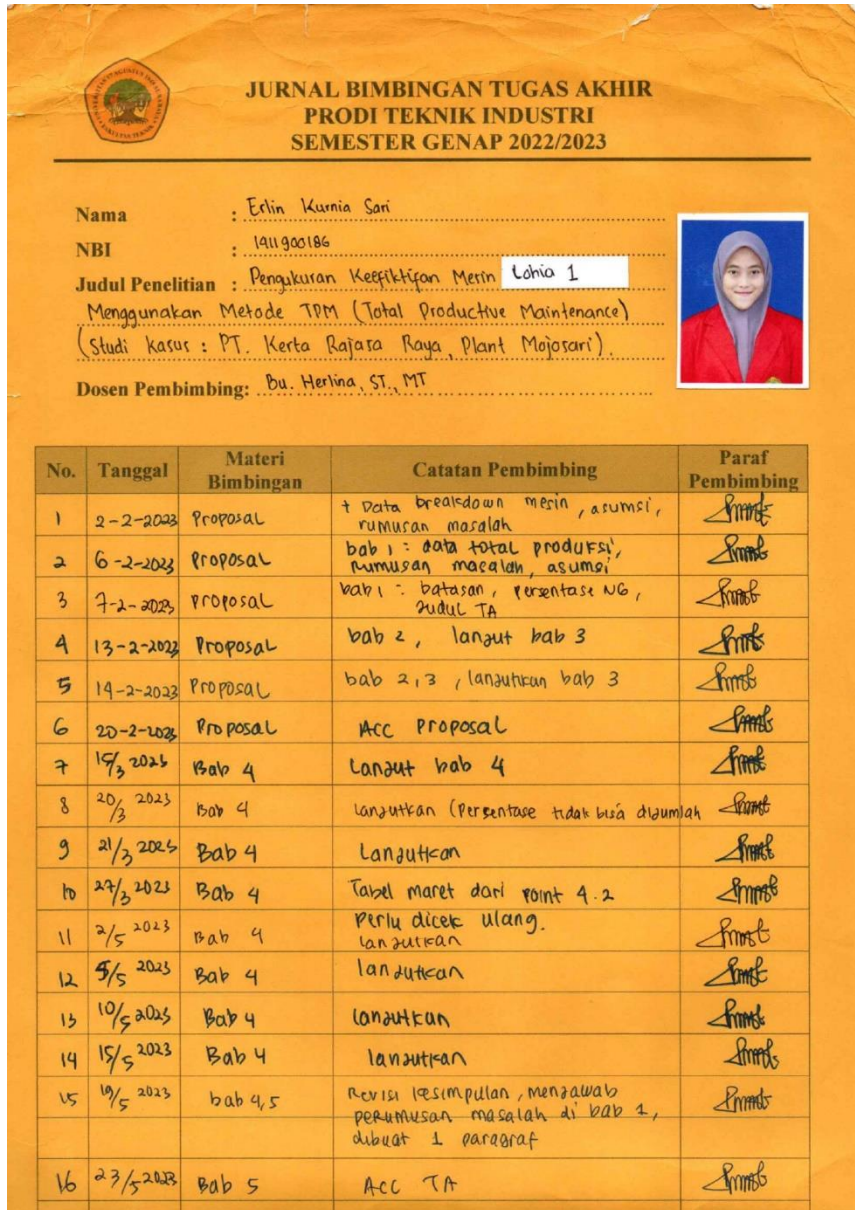 JURNAL BIMBINGAN TUGAS AKHIR
PRODI TEKNIK INDUSTRI
SEMESTER GENAP 2022/2023
Nama : Erlin Kurnia Sari
NBI : 1411900186
Judul Penelitian : Pengukuran Keefiktifan Mesin Lohia 1
Menggunakan Metode TPM (Total Productive Maintenance)
(Studi Kasus : PT. Kerta Rajasa Raya, Plant Mojosari).
Dosen Pembimbing: Bu. Herlina, ST., MT
No. Tanggal Materi Bimbingan Catatan Pembimbing Paraf Pembimbing
1 2-2-2023 Proposal + Data breakdown mesin, asumsi,
rumusan masalah
2 6-2-2023 Proposal bab 1 : data total produksi,
rumusan masalah, asumsi
3 7-2-2023 Proposal bab 1 : batasan, persentase NG,
Judul TA
4 13-2-2023 Proposal bab 2, lanjut bab 3
5 14-2-2023 Proposal bab 2,3, lanjutkan bab 3
6 20-2-2023 Proposal Acc Proposal
7 15/3 2023 Bab 4 Lanjut bab 4
8 20/3 2023 Bab 4 Lanjutkan (Persentase tidak bisa dijumlah
9 21/3 2023 Bab 4 Lanjutkan
10 27/3 2023 Bab 4 Tabel maret dari point 4.2
11 2/5 2023 Bab 4 Perlu dicek ulang.
lanjutkan
12 5/5 2023 Bab 4 lanjutkan
13 10/5 2023 Bab 4 lanjutkan
14 15/5 2023 Bab 4 lanjutkan
15 19/5 2023 bab 4,5 Revisi kesimpulan, menjawab
perumusan masalah di bab 1,
dibuat 1 paragraf
16 23/5 2023 Bab 5 Acc TA